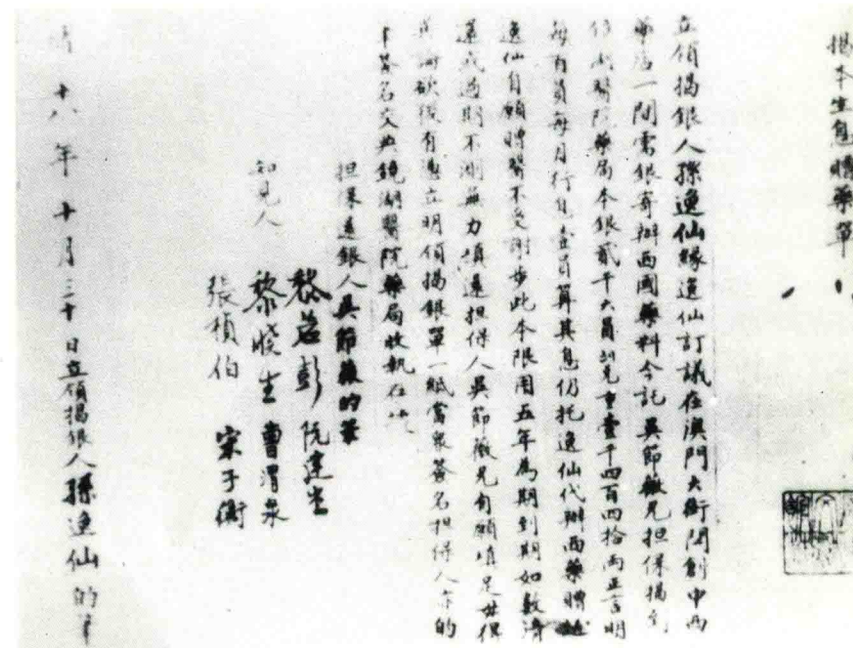 揭本生息贈藥單
立領揭銀人孫逸仙緣逸仙訂議在澳門大街開創中西
藥店一間需銀寄辦西國藥料今託吳節薇兄担保揭到
鏡湖醫院藥局本銀貳千大員計兌重壹千四百四拾両正言明
每百員每月行息壹員算其息仍托逸仙代辦西藥贈
逸仙自願贈醫不受謝步此本限用五年為期到期如數清
還或過期不測無力填還担保人吳節薇兄自願填足毋得
異論欲後有憑立明領揭銀單一紙當眾簽名担保人亦的
筆簽名交與鏡湖醫院藥局收執存
担保還銀人吳節薇的筆
黎若彭 阮建堂
知見人 黎曉生 曹渭泉
張楨伯 宋子衡
十八年十月三十日立領揭銀人孫逸仙的筆